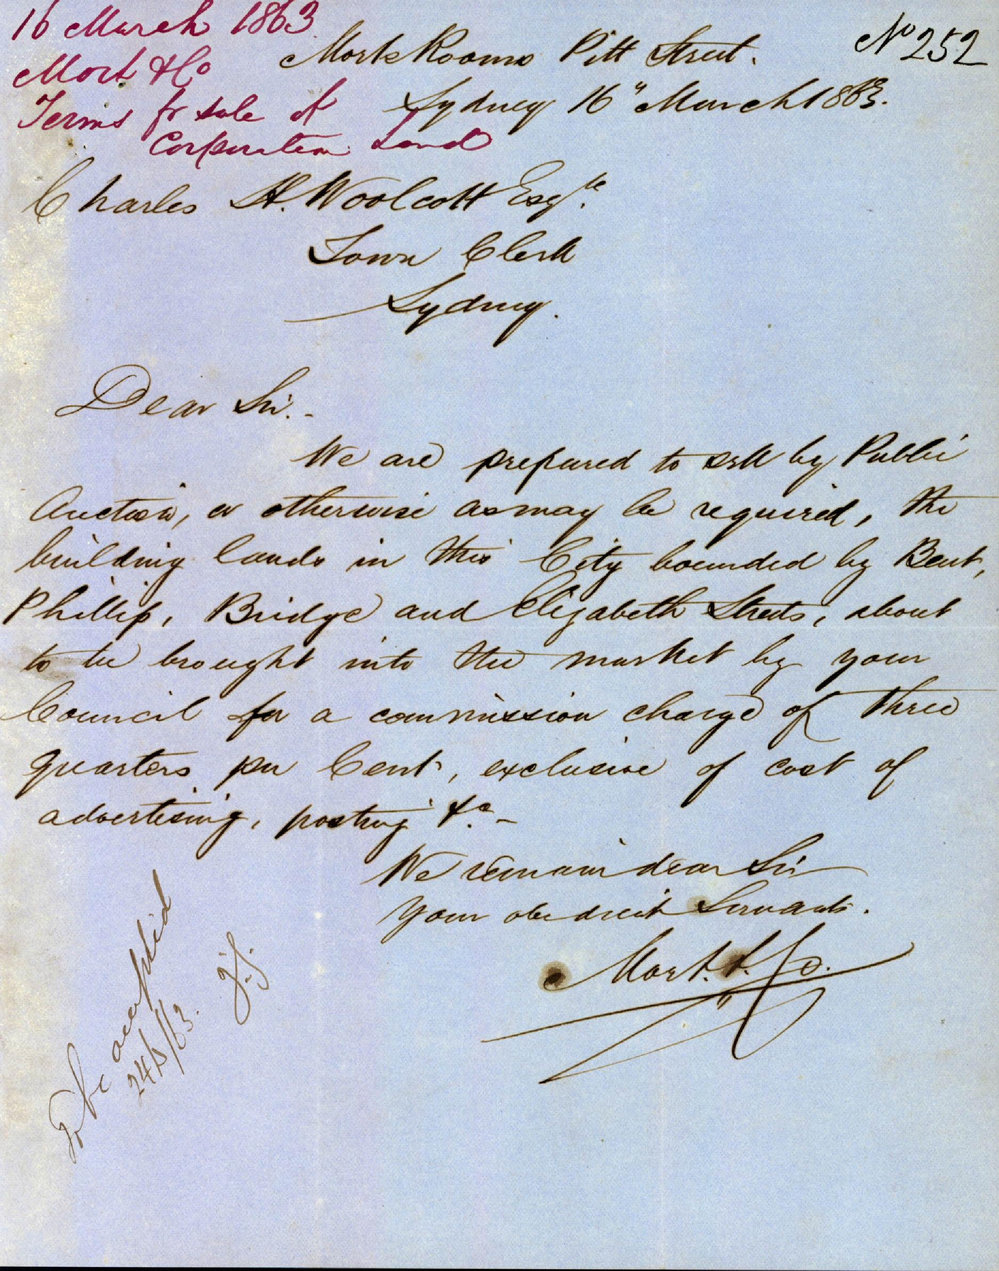 16 March 1863
Mort & Co
Terms for sale of
Corporation Land
No 252
Morts Rooms Pitt Street.
Sydney 16" March 1863.
Charles H. Woolcott Esqre.
Town Clerk
Sydney.
Dear Sir.-
We are prepared to sell by Public
Auction, or otherwise as may be required, the
building lands in this City bounded by Bent,
Phillip, Bridge and Elizabeth Streets, about
to be brought into the market by your
Council for a commission charge of three
quarters per Cent, exclusive of cost of
advertising, posting &c.-
We remain dear Sir
Your obedient Servants.
Mort. & Co.
To be accepted
24/3/63.
J.S.